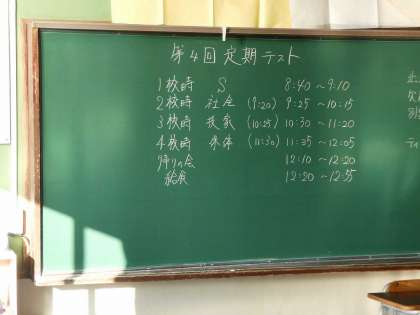 第4回定期テスト
1校時 S 8:40～9:10
2校時 社会 (9:20) 9:25～10:15
3校時 技家 (10:25) 10:30～11:20
4校時 保体 (11:30) 11:35～12:05
帰りの会 12:10～12:20
給食 12:20～12:55